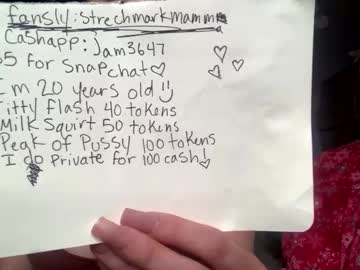 fansly:strechmarkmamma
Cashapp: Jam3647
$5 for Snapchat♡
I'm 20 years old :)
Titty flash 40 tokens
Milk Squirt 50 tokens
Peak of Pussy 100 tokens
I do Private for 100 cash